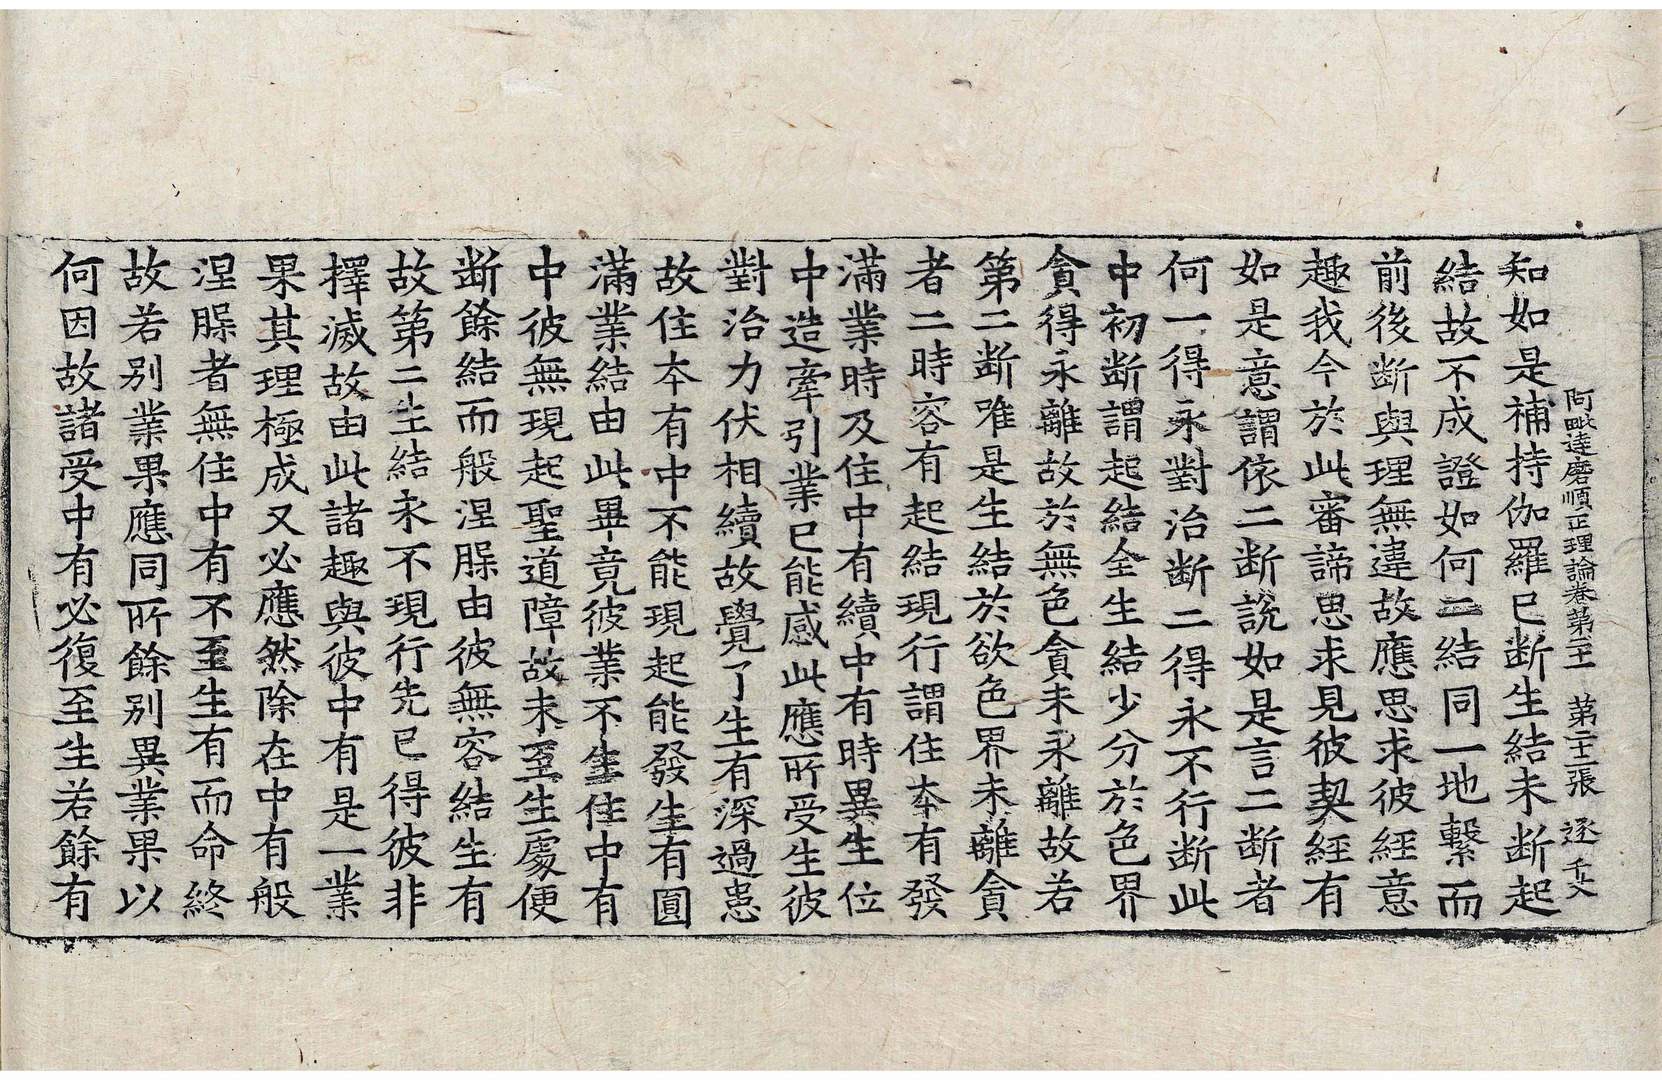 阿毗達磨順正理論卷第二十三 第二十二張 逐 千文
知如是補特伽羅已断生結未断起
結故不成證如何二結同一地繫而
前後断與理無違故應思求彼經意
趣我今於此審諦思求見彼契經有
如是意謂依二断說如是言二断者
何一得永對治断二得永不行断此
中初断謂起結全生結少分於色界
貪得永離故於無色貪未永離故若
第二断唯是生結於欲色界未離貪
者二時容有起結現行謂住本有發
滿業時及住中有續中有時異生位
中造牽引業已能感此應所受生彼
對治力伏相續故覺了生有深過患
故住本有中不能現起能發生有圓
滿業結由此畢竟彼業不生住中有
中彼無現起聖道障故未至生處便
断餘結而般涅槃由彼無容結生有
故第二生結永不現行先已得彼非
擇滅故由此諸趣與彼中有是一業
果其理極成又必應然除在中有般
涅槃者無住中有不至生有而命終
故若別業果應同所餘別異業果以
何因故諸受中有必復至生若餘有